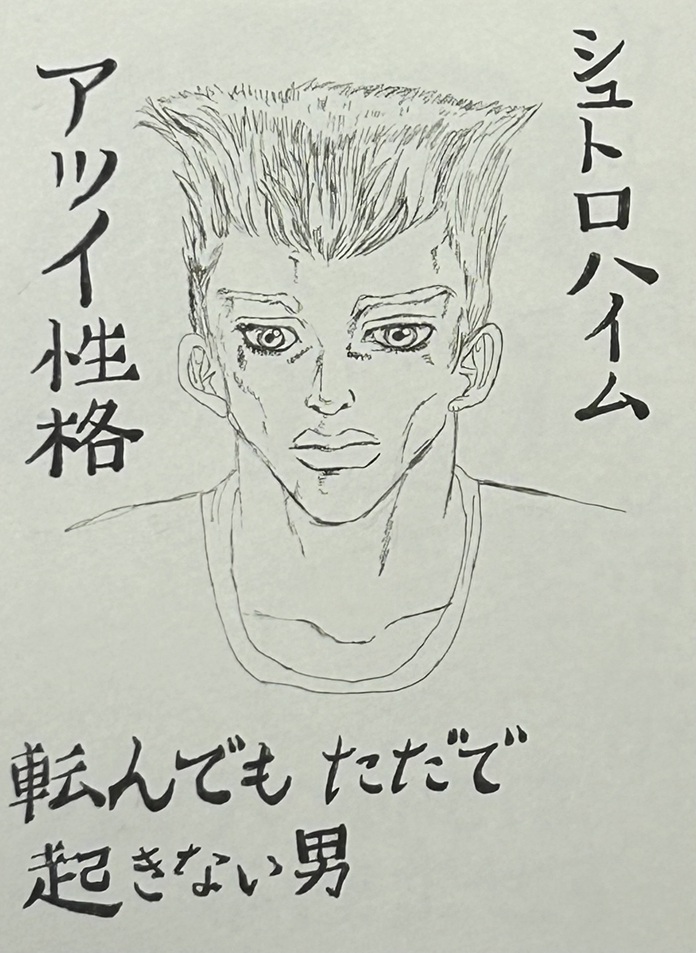 シュトロハイム
アツイ性格
転んでもただで
起きない男